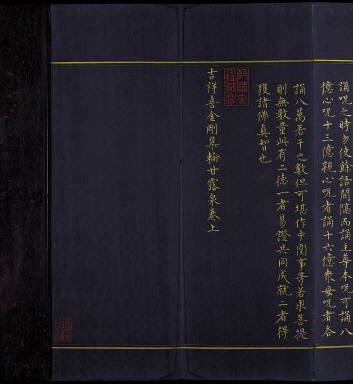 誦咒之時勿使餘語間隔而誦主尊本咒可誦八
億心咒十三億親心咒者誦十六億衆母咒者各
誦八萬若干之數但可堪作中圍事等若求菩提
則無數量此有二德一者易證共同成就二者得
獲諸佛真智也
吉祥喜金剛集輪甘露泉卷上